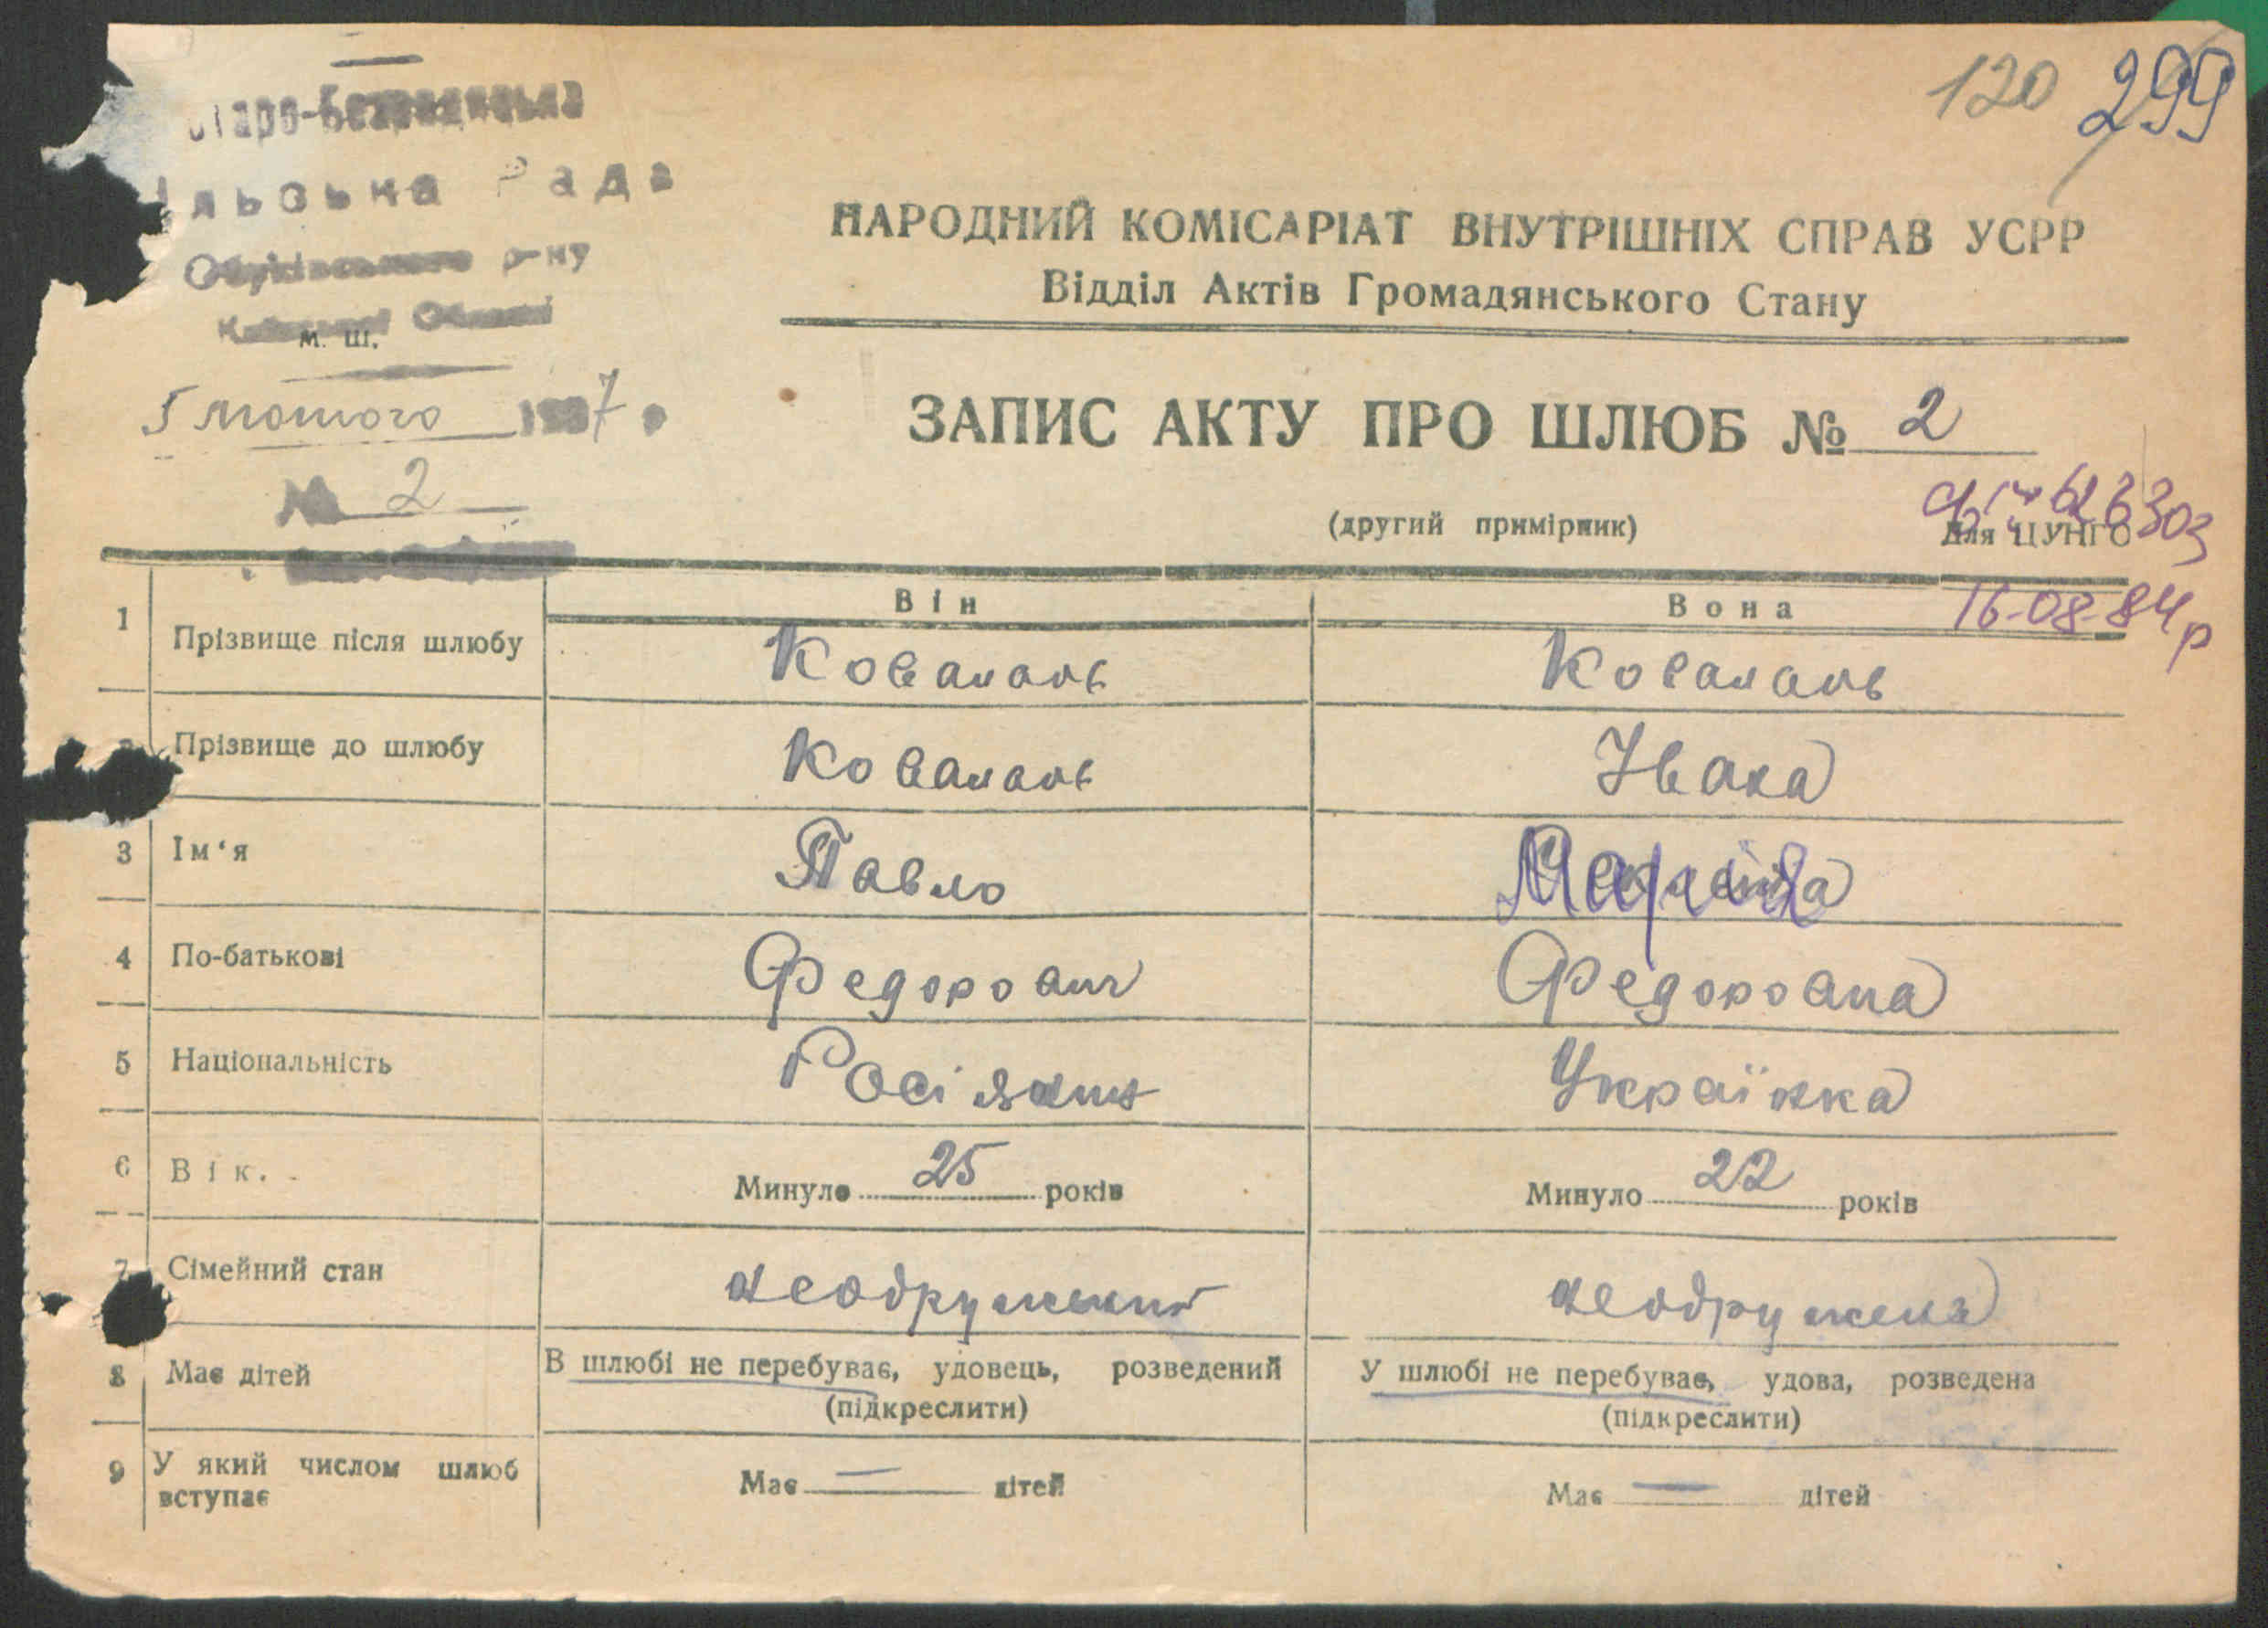 120 299
Старо-Безрадицька
ільська Рада
Обухівського р-ну
Київської Області
М. Ш.
5 лютого 1937 р
№ 2
НАРОДНИЙ КОМІСАРІАТ ВНУТРІШНІХ СПРАВ УСРР
Відділ Актів Громадянського Стану
ЗАПИС АКТУ ПРО ШЛЮБ № 2
(другий примірник)
Для ЦУНГО
626303
16-08-84 р
Він Вона
1 Прізвище після шлюбу Коваль Коваль
Прізвище до шлюбу Коваль Івака
3 Ім‘я Павло Марія
4 По-батькові Федорович Федоровна
5 Національність Росіянин Українка
6 Вік. Минуло 25 років Минуло 22 років
7 Сімейний стан неодружений неодружена
8 Має дітей В шлюбі не перебуває, удовець, розведений У шлюбі не перебуває, удова, розведена
(підкреслити) (підкреслити)
9 У який числом шлюб вступає Має — дітей Має — дітей